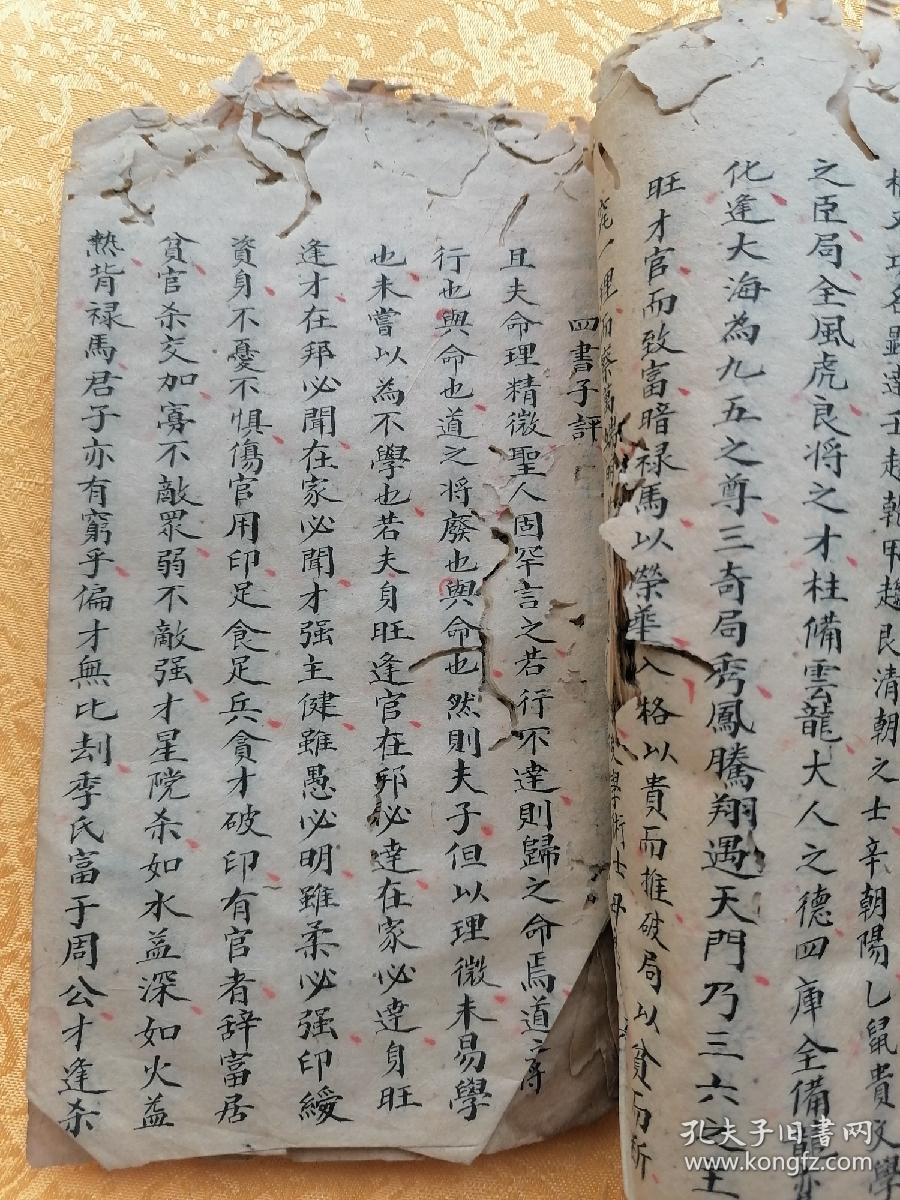 功名顯達壬趨艮清朝之士辛朝陽乙鼠貴文學
之臣局全風虎良將之才柱備雲龍大人之德四庫全備龍亦
化逢大海為九五之尊三奇局秀鳳騰翔遇天門乃三六之主
旺才官而致富暗禄馬以榮華入格以貴而推破局以貧而断
一理而察萬
四書子評
且夫命理精微聖人固罕言之若行不達則歸之命焉道之将
行也與命也道之将廢也與命也然則夫子但以理微未易學
也未嘗以為不學也若夫身旺逢官在邦必達在家必達身旺
逢才在邦必聞在家必聞才强主健雖愚必明雖柔必强印綬
資身不憂不惧傷官用印足食足兵貪才破印有官者辞富居
貧官杀交加寡不敵眾弱不敵强才星党杀如水益深如火益
熱背禄馬君子亦有窮乎偏才無比刦季氏富于周公才逢杀
孔夫子旧書网
www.kongfz.com